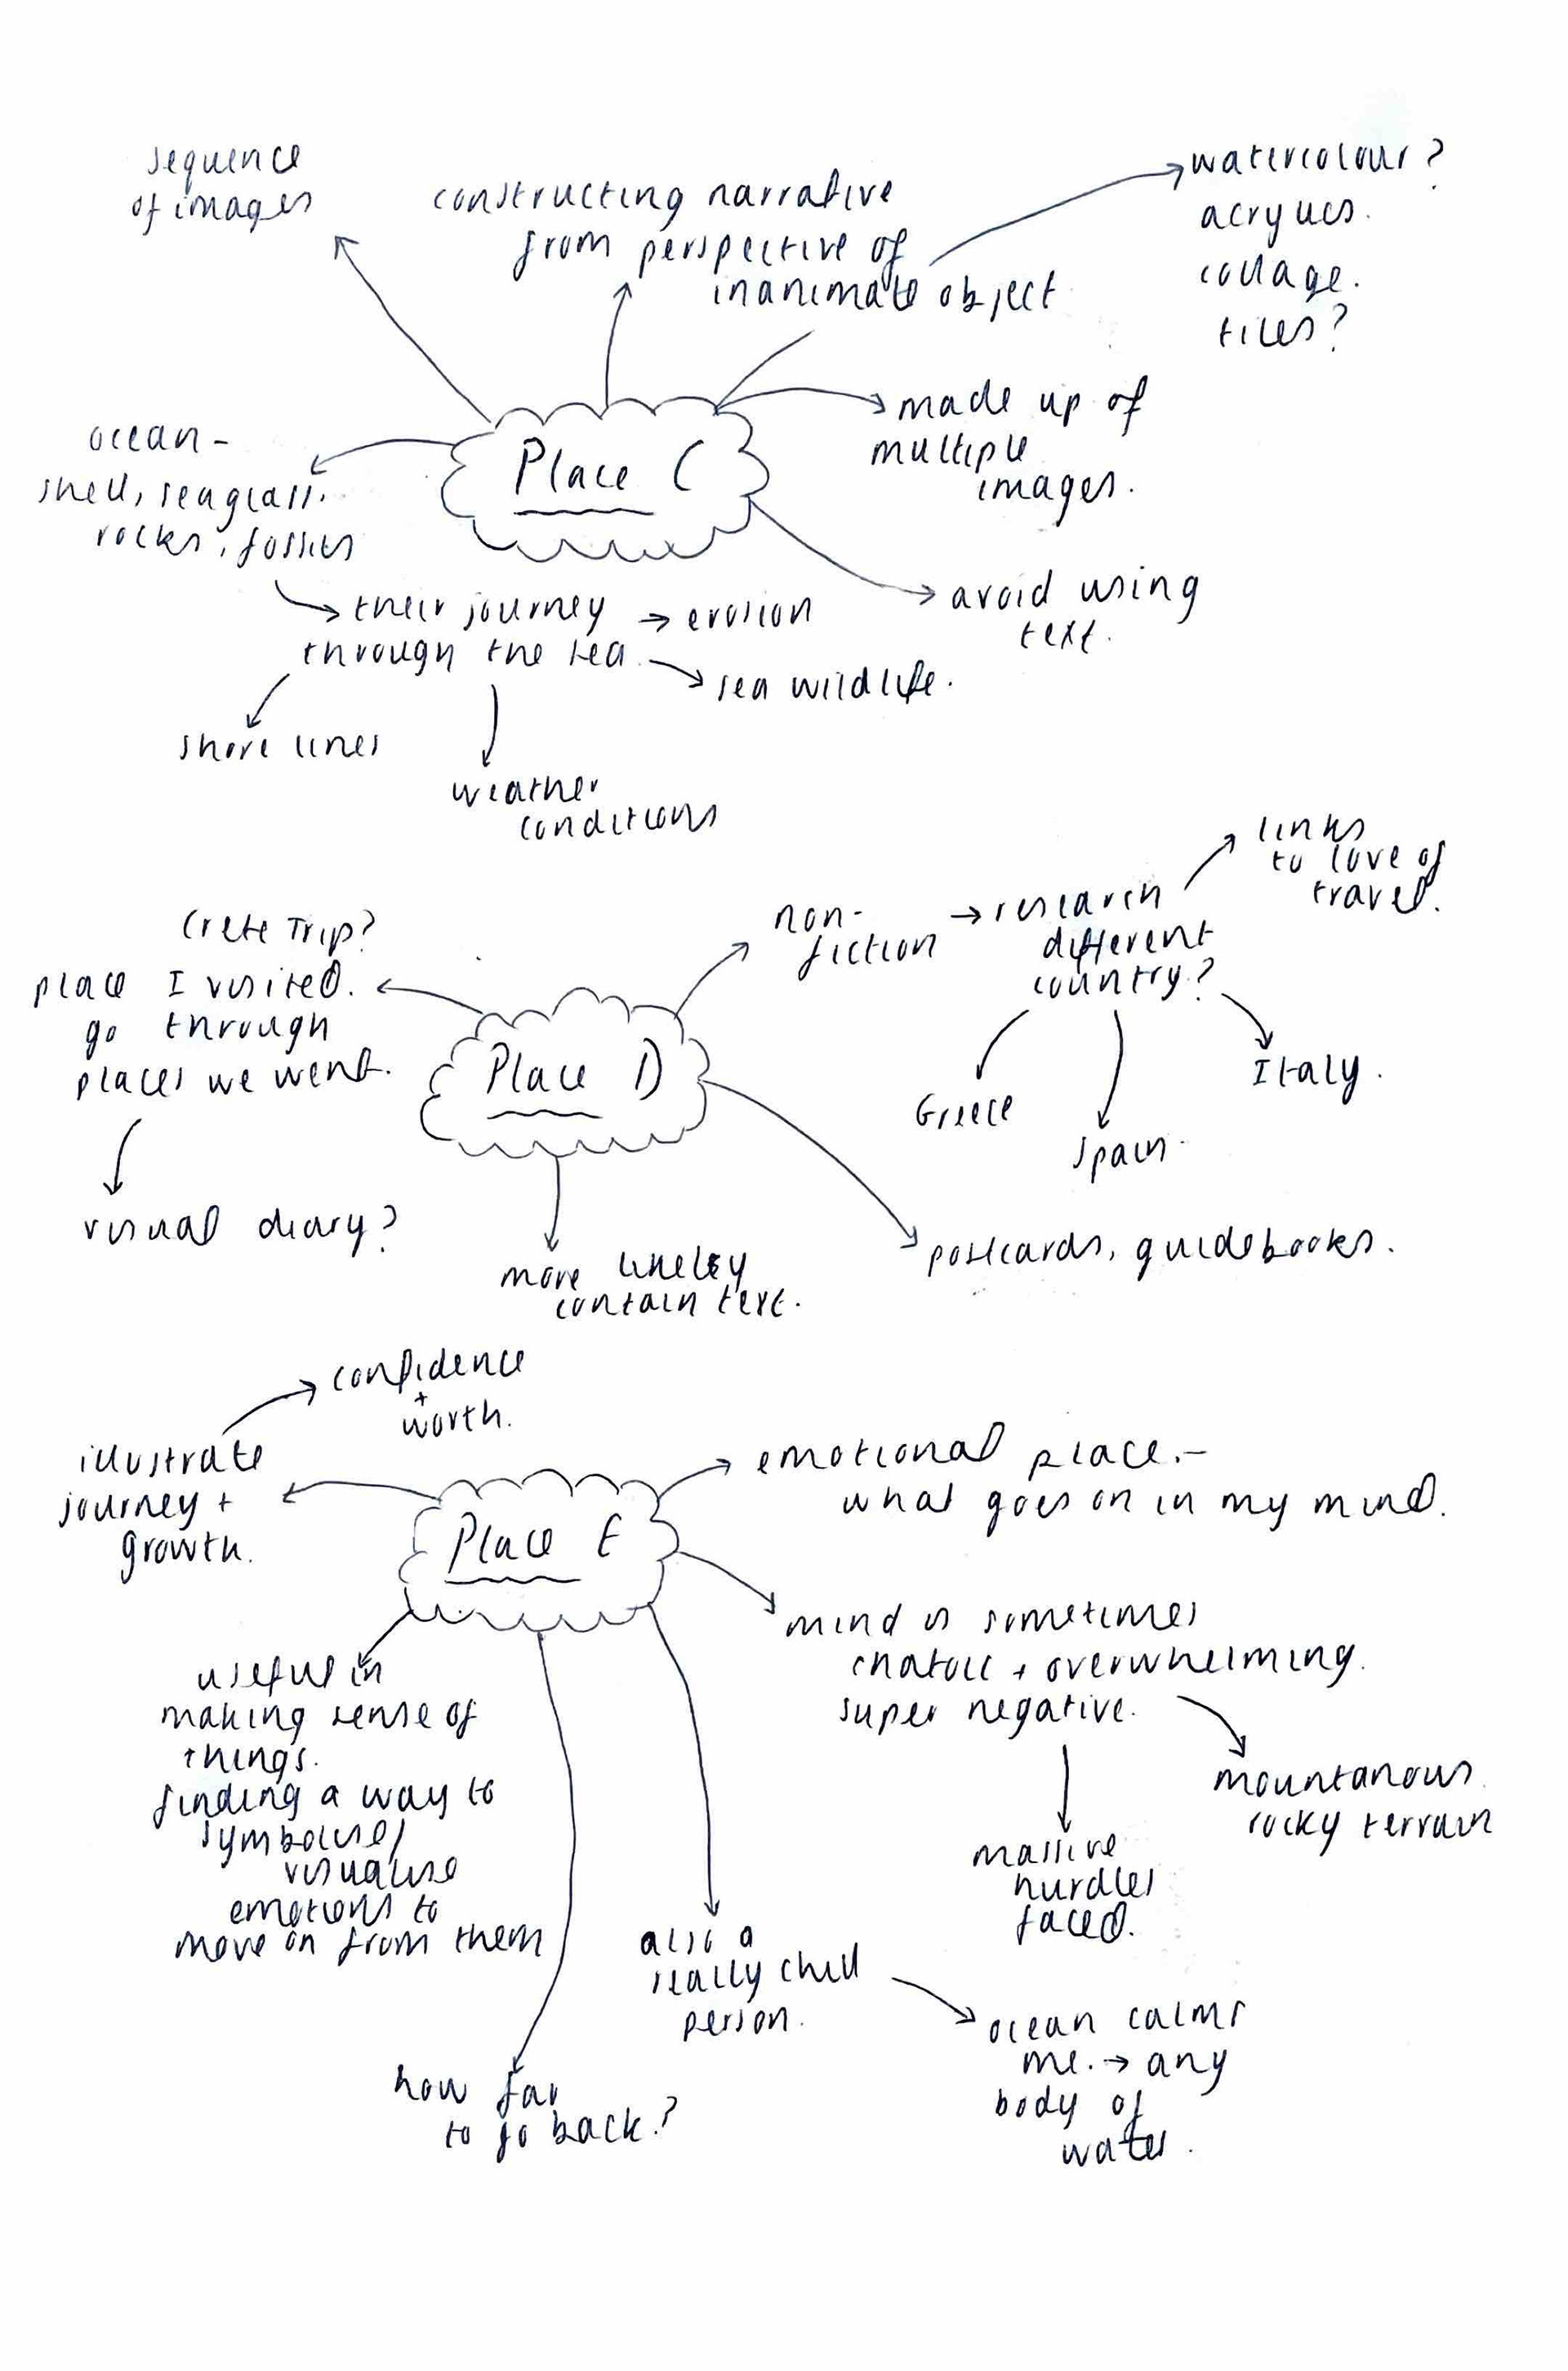 sequence
of images
constructing narrative
from perspective of
inanimate object
watercolour?
acrylics.
collage.
tiles?
Place C
made up of
multiple
images.
ocean -
shell, seaglass,
rocks, fossils
avoid using
text.
their journey → erosion
through the sea
sea wildlife.
shore lines
weather
conditions
Place D
Crete Trip?
place I visited.
go through
places we went.
visual diary?
non-
fiction
→ research
different
country?
links
to love of
travel.
Greece
Spain.
Italy.
postcards, guidebooks.
more likeley
contain text.
Place E
confidence
+
worth.
illustrate
journey +
growth.
emotional place. -
what goes on in my mind.
mind is sometimes
chatoic + overwhelming.
super negative.
mountanous
rocky terrain
massive
hurdles
faced.
useful in
making sense of
things.
finding a way to
symbolise/
visualise
emotions to
move on from them
also a
really chill
person.
ocean calms
me. → any
body of
water.
how far
to go back?